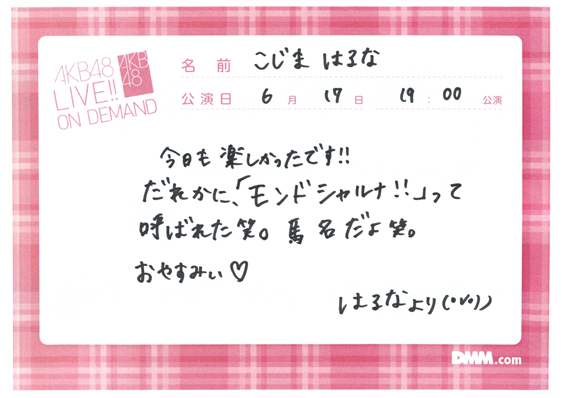 AKB48
LIVE!!
ON DEMAND
AKB
48
名 前 こじま はるな
公演日 6 月 17 日 19 : 00 公演
今日も 楽しかったです!!
だれかに、「モンドシャルナ!!」って
呼ばれた笑。馬名だよ笑。
おやすみぃ♡
はるなより(°∨°))
DMM.com